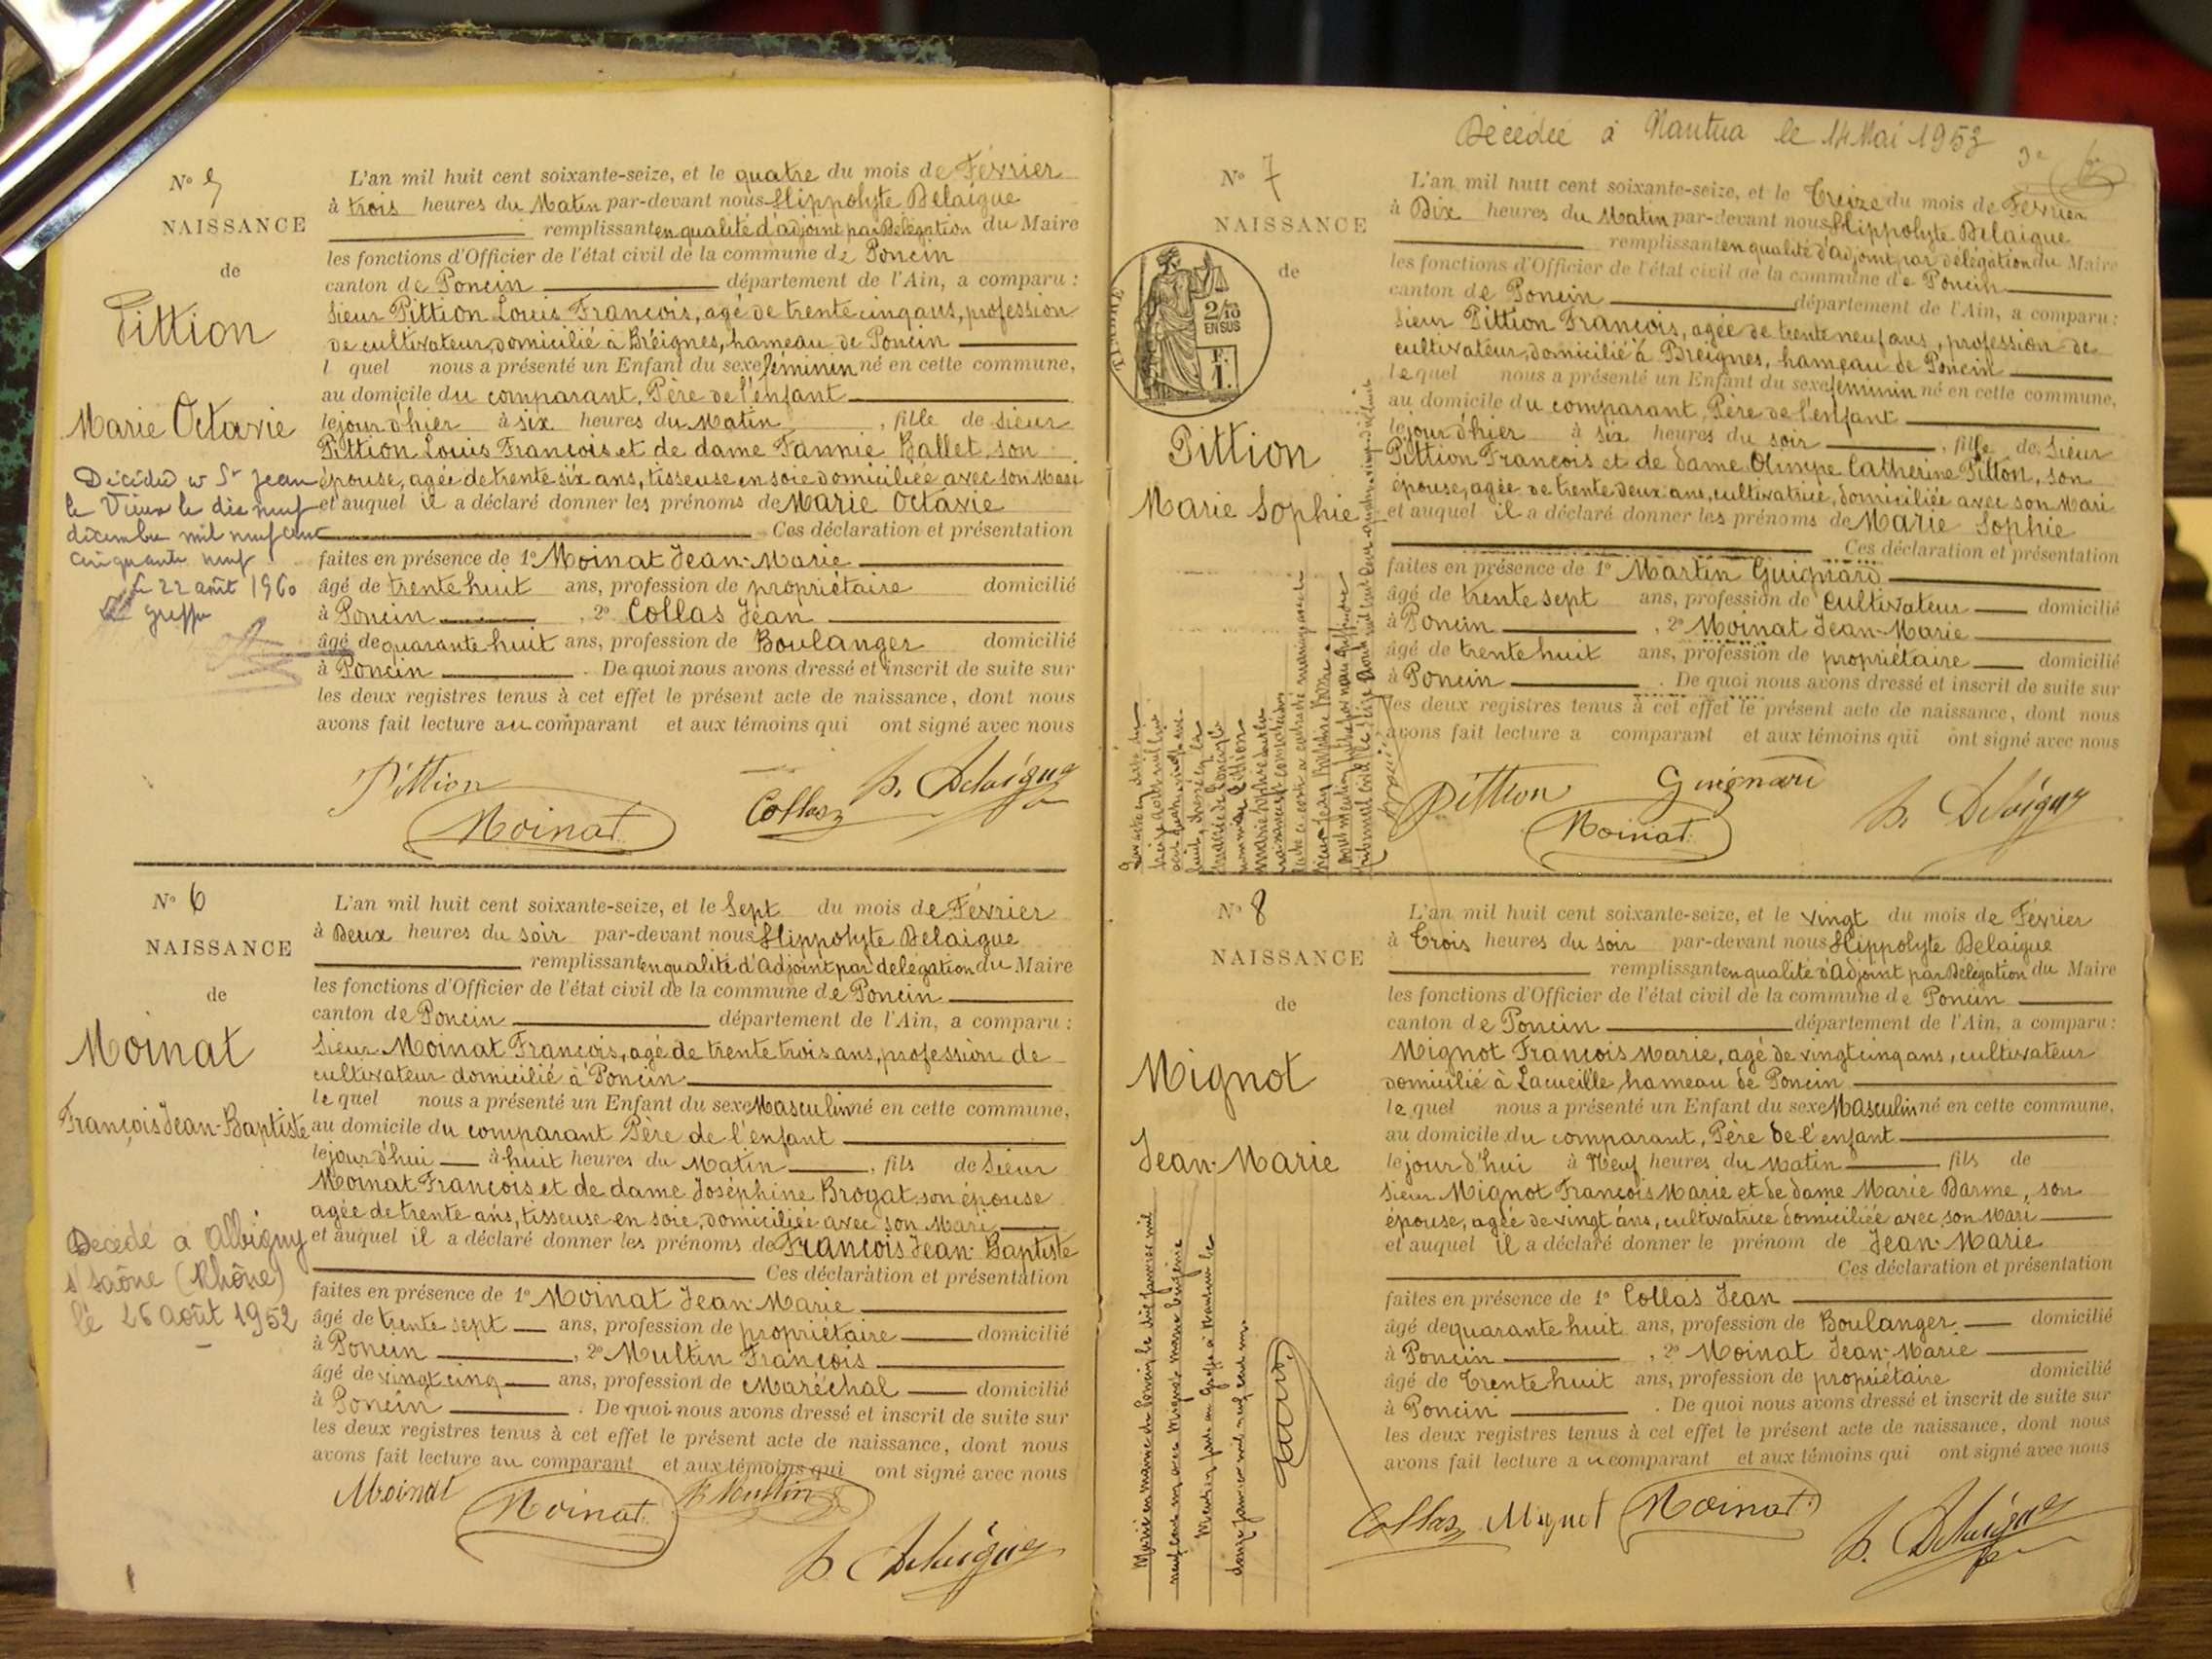 N° 5
NAISSANCE
de
Pittion
Marie Octavie
Décédée à St Jean
le Vieux le dix neuf
décembre mil neuf cent
cinquante neuf
Le 22 août 1960
Le greffier
L'an mil huit cent soixante-seize, et le quatre du mois de Février
à trois heures du Matin par-devant nous Hippolyte Delaigue
remplissant en qualité d'adjoint par Délégation du Maire
les fonctions d'Officier de l'état civil de la commune de Poncin
canton de Poncin département de l'Ain, a comparu :
Sieur Pittion Louis François, agé de trente cinq ans, profession
de cultivateur, domicilié à Bréignes, hameau de Poncin
l quel nous a présenté un Enfant du sexe féminin né en cette commune,
au domicile du comparant, Père de l'enfant
le jour d'hier à six heures du Matin, fille de sieur
Pittion Louis François et de dame Fannie Ballet son
épouse, agée de trente six ans, tisseuse en soie domiciliée avec son Mari
et auquel il a déclaré donner les prénoms de Marie Octavie
Ces déclaration et présentation
faites en présence de 1° Moinat Jean-Marie
âgé de trente huit ans, profession de propriétaire domicilié
à Poncin, 2° Collas Jean
âgé de quarante huit ans, profession de Boulanger domicilié
à Poncin. De quoi nous avons dressé et inscrit de suite sur
les deux registres tenus à cet effet le présent acte de naissance, dont nous
avons fait lecture au comparant et aux témoins qui ont signé avec nous
Pittion Collas h. Delaigue
Moinat
N° 6
NAISSANCE
de
Moinat
François Jean-Baptiste
Décédé à Albigny
s/ Saône (Rhône)
le 26 août 1952
L'an mil huit cent soixante-seize, et le Sept du mois de Février
à Deux heures du soir par-devant nous Hippolyte Delaigue
remplissant en qualité d'Adjoint par délégation du Maire
les fonctions d'Officier de l'état civil de la commune de Poncin
canton de Poncin département de l'Ain, a comparu :
Sieur Moinat François, agé de trente trois ans, profession de
cultivateur domicilié à Poncin
le quel nous a présenté un Enfant du sexe Masculin né en cette commune,
au domicile du comparant Père de l'enfant
le jour d'hui à huit heures du Matin, fils de Sieur
Moinat François et de dame Joséphine Brogat son épouse
agée de trente ans, tisseuse en soie, domiciliée avec son Mari,
et auquel il a déclaré donner les prénoms de François Jean-Baptiste
Ces déclaration et présentation
faites en présence de 1° Moinat Jean-Marie
âgé de trente sept ans, profession de propriétaire domicilié
à Poncin, 2° Multin François
âgé de vingt cinq ans, profession de Maréchal domicilié
à Poncin. De quoi nous avons dressé et inscrit de suite sur
les deux registres tenus à cet effet le présent acte de naissance, dont nous
avons fait lecture au comparant et aux témoins qui ont signé avec nous
Moinat Moinat Multin
h. Delaigue
Décédée à Nantua le 14 Mai 1953
N° 7
NAISSANCE
de
2/10
EN SUS
F.
1.
Pittion
Marie Sophie
L'an mil huit cent soixante-seize, et le Treize du mois de Février
à Dix heures du Matin par-devant nous Hippolyte Delaigue
remplissant en qualité d'Adjoint par délégation du Maire
les fonctions d'Officier de l'état civil de la commune de Poncin
canton de Poncin département de l'Ain, a comparu :
Sieur Pittion François, agée de trente neuf ans, profession de
cultivateur, domicilié à Breignes, hameau de Poncin
le quel nous a présenté un Enfant du sexe féminin né en cette commune,
au domicile du comparant, Père de l'enfant
le jour d'hier à six heures du soir, fille de Sieur
Pittion François et de dame Olimpe Catherine Pitton, son
épouse, agée de trente deux ans, cultivatrice, domiciliée avec son Mari
et auquel il a déclaré donner les prénoms de Marie Sophie
Ces déclaration et présentation
faites en présence de 1° Martin Guignard
âgé de trente sept ans, profession de cultivateur domicilié
à Poncin, 2° Moinat Jean-Marie
âgé de trente huit ans, profession de propriétaire domicilié
à Poncin. De quoi nous avons dressé et inscrit de suite sur
les deux registres tenus à cet effet le présent acte de naissance, dont nous
avons fait lecture a comparant et aux témoins qui ont signé avec nous
Pittion Guignard h. Delaigue
Moinat
N° 8
NAISSANCE
de
Mignot
Jean-Marie
Marié en mairie de Poncin le dix janvier mil
neuf cent
Mention faite au Greffe à Nantua le
douze janvier mil neuf cent
L'an mil huit cent soixante-seize, et le vingt du mois de Février
à Trois heures du soir par-devant nous Hippolyte Delaigue
remplissant en qualité d'Adjoint par Délégation du Maire
les fonctions d'Officier de l'état civil de la commune de Poncin
canton de Poncin département de l'Ain, a comparu :
Mignot François Marie, agé de vingt cinq ans, cultivateur
domicilié à Lacueille, hameau de Poncin
le quel nous a présenté un Enfant du sexe Masculin né en cette commune,
au domicile du comparant, Père de l'enfant
le jour d'hui à Neuf heures du Matin fils de
Sieur Mignot François Marie et de dame Marie Darme, son
épouse, agée de vingt ans, cultivatrice domiciliée avec son Mari
et auquel il a déclaré donner le prénom de Jean-Marie
Ces déclaration et présentation
faites en présence de 1° Collas Jean
âgé de quarante huit ans, profession de Boulanger domicilié
à Poncin, 2° Moinat Jean-Marie
âgé de Trente huit ans, profession de propriétaire domicilié
à Poncin. De quoi nous avons dressé et inscrit de suite sur
les deux registres tenus à cet effet le présent acte de naissance, dont nous
avons fait lecture au comparant et aux témoins qui ont signé avec nous
Collas Mignot Moinat h. Delaigue